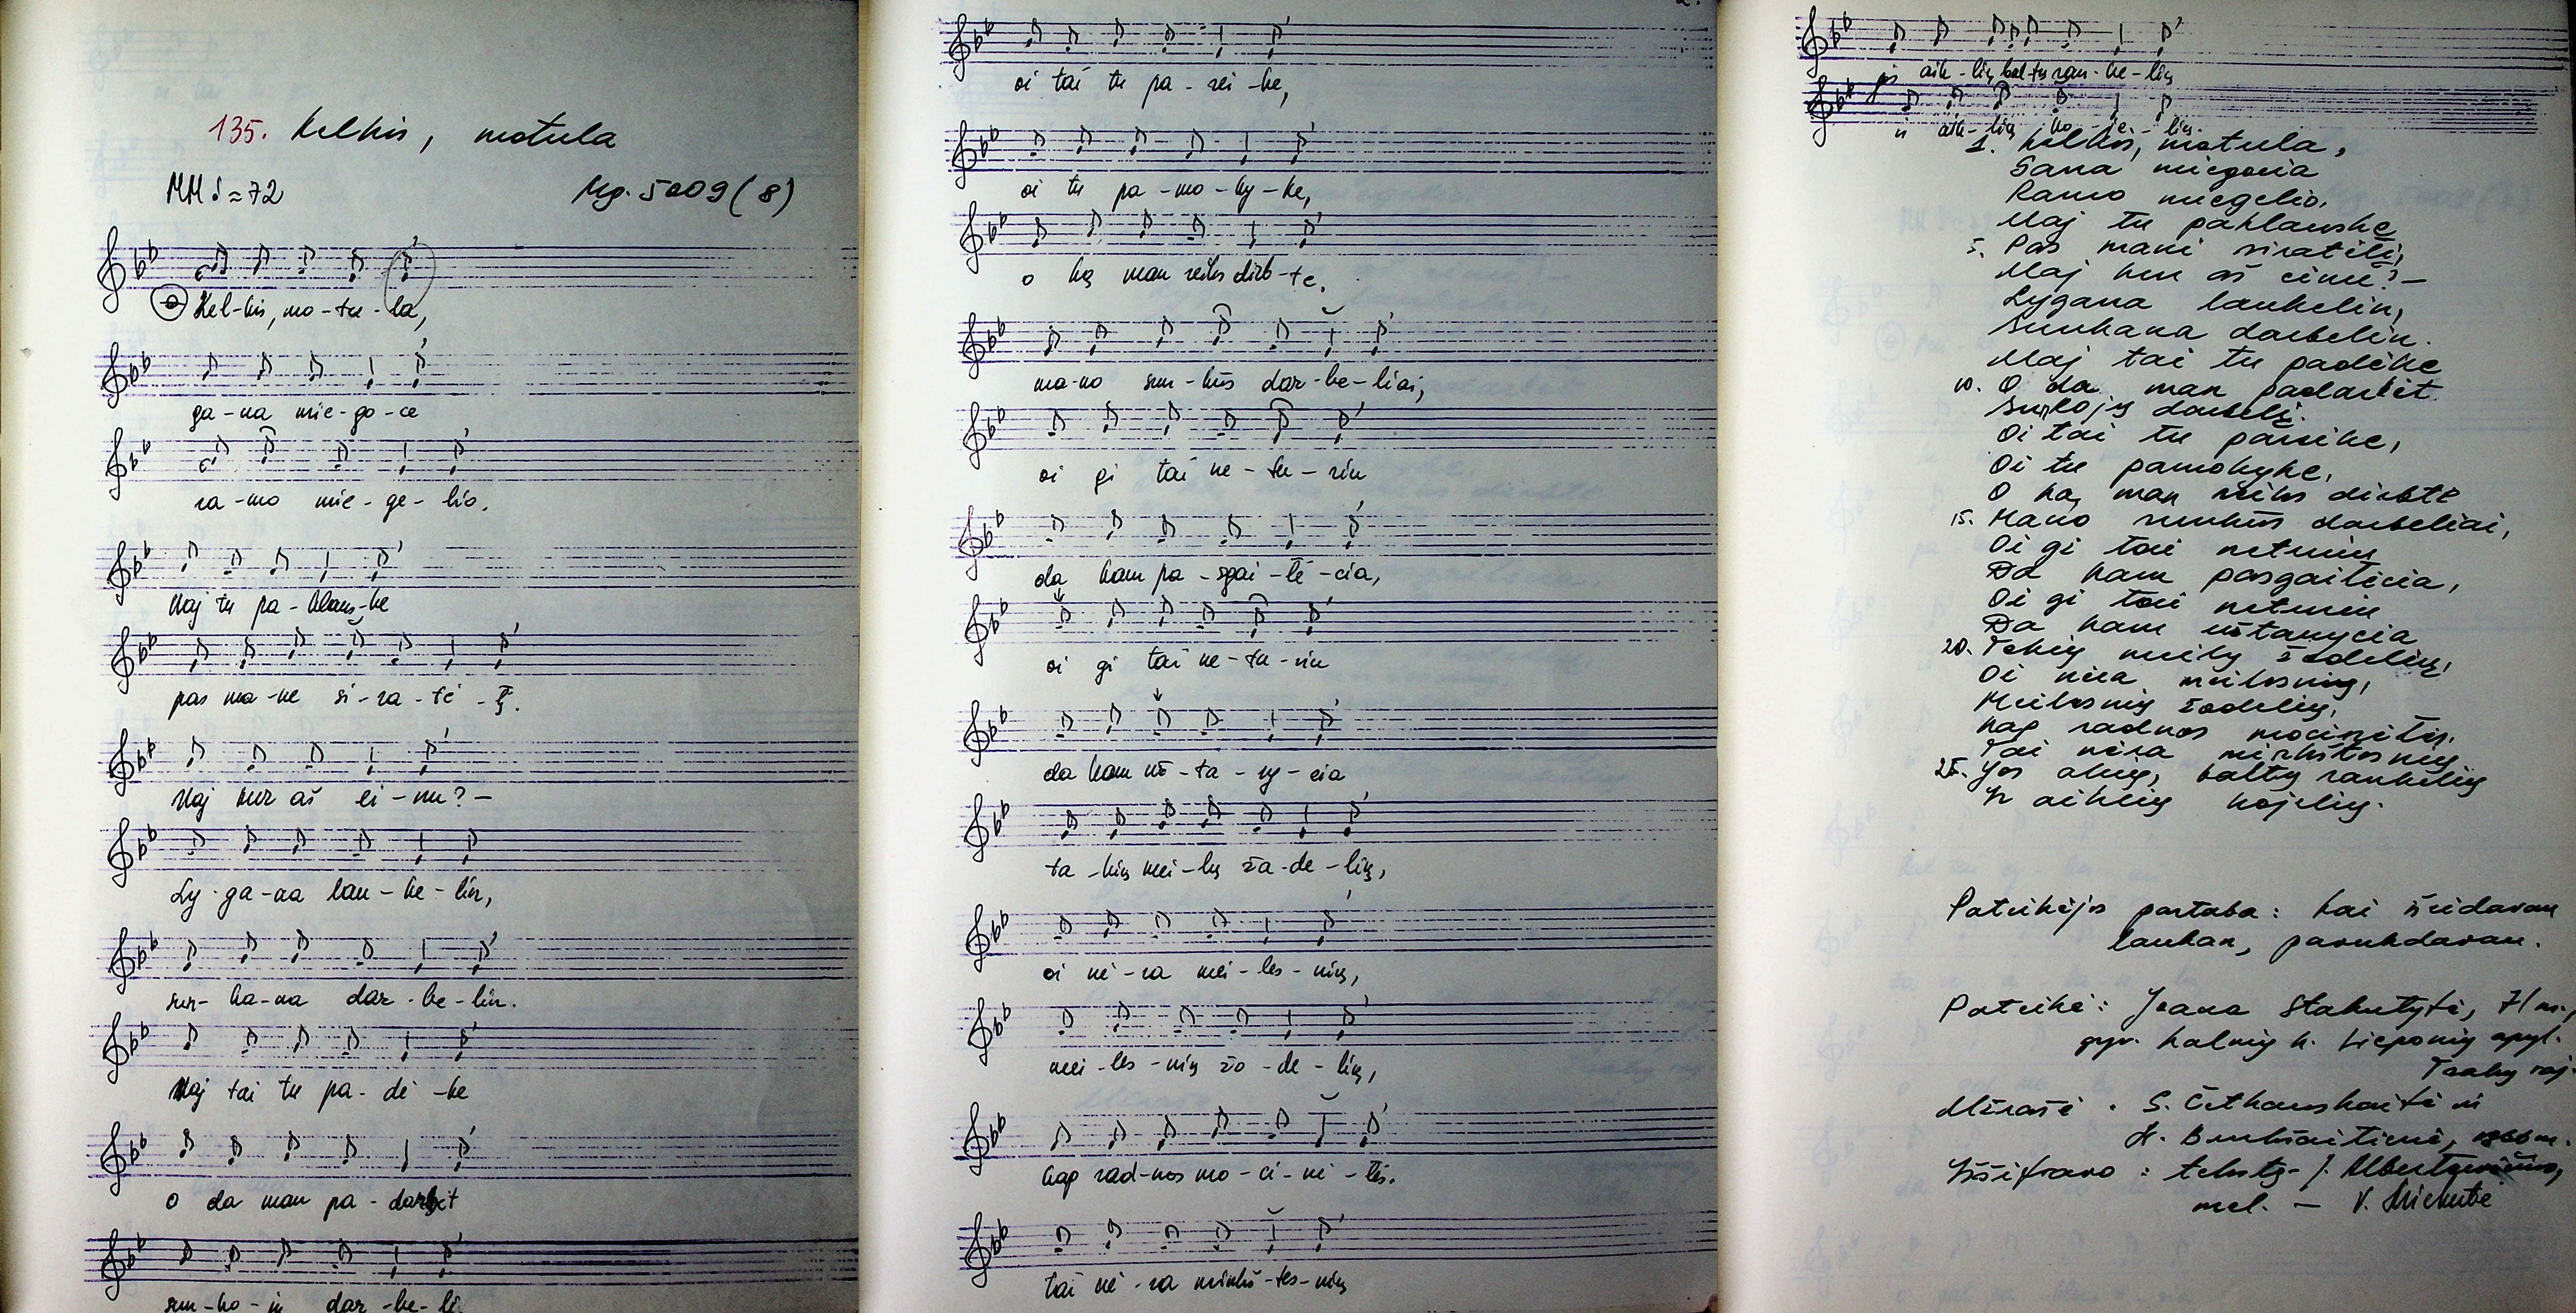 135. Kelkis, motula
MM ♪≈72 Mg. 5009(8)
Kel-kis, mo-tu-la,
ga-na mie-go-ce
ra-mo mie-ge-lio.
Uoj tu pa-klaus-ke
pas ma-ne si-ra-tė-lį.
Uoj kur aš ei-nu? –
Ly-ga-na lau-ke-lin,
sun-ka-na dar-be-lin.
Uoj tai tu pa-dė-ke
o da man pa-darbit
sun-ko-jį dar-be-lį.
2.
oi tai tu pa-rei-ke,
oi tu pa-mo-ky-ke,
o ką man reiks dirb-te.
ma-no sun-kūs dar-be-liai,
oi gi tai ne-tu-riu
da kam pa-sgai-lė-cia,
oi gi tai ne-tu-riu
da kam už-ta-ry-cia
to-kių mei-lų žo-de-lių,
oi nė-ra mei-les-nių,
mei-les-nių žo-de-lių,
kap rad-nos mo-ci-nė-lės.
tai nė-ra minkš-tes-nių
jos aik-lių bal-tų ran-ke-lių
ir aik-lių ko-je-lių.
1. Kelkis, motula,
Gana miegocia
Ramo miegelio.
Uoj tu paklauske
5. Pas mani siratėlį,
Uoj kur aš einu? –
Lygana laukelin,
Sunkana darbelin.
Uoj tai tu padėke
10. O da man padarbit
Sunkojų darbelį.
Oi tai tu pareike,
Oi tu pamokyke,
O ką man reiks dirbte
15. Mano sunkūs darbeliai,
Oi gi tai neturiu
Da kam pasgailėcia,
Oi gi tai neturiu
Da kam užtarycia
20. Tokių meilų žodelių,
Oi nėra meilesnių,
Meilesnių žodelių,
Kap radnos mocinėlės.
Tai nėra minkštesnių
25. Jos aklių, baltų rankelių
Ir aiklių kojelių.
Pateikėjos pastaba: kai išeidavau
laukan, paraukdavau.
Pateikė: Joana Stakutytė, 71 m.,
gyv. Kalnių k. Lieponių apyl.
Trakų raj.
Užrašė: S. Četkauskaitė ir
1966 m.
Iššifravo: tekstą – J.
mel. – V.